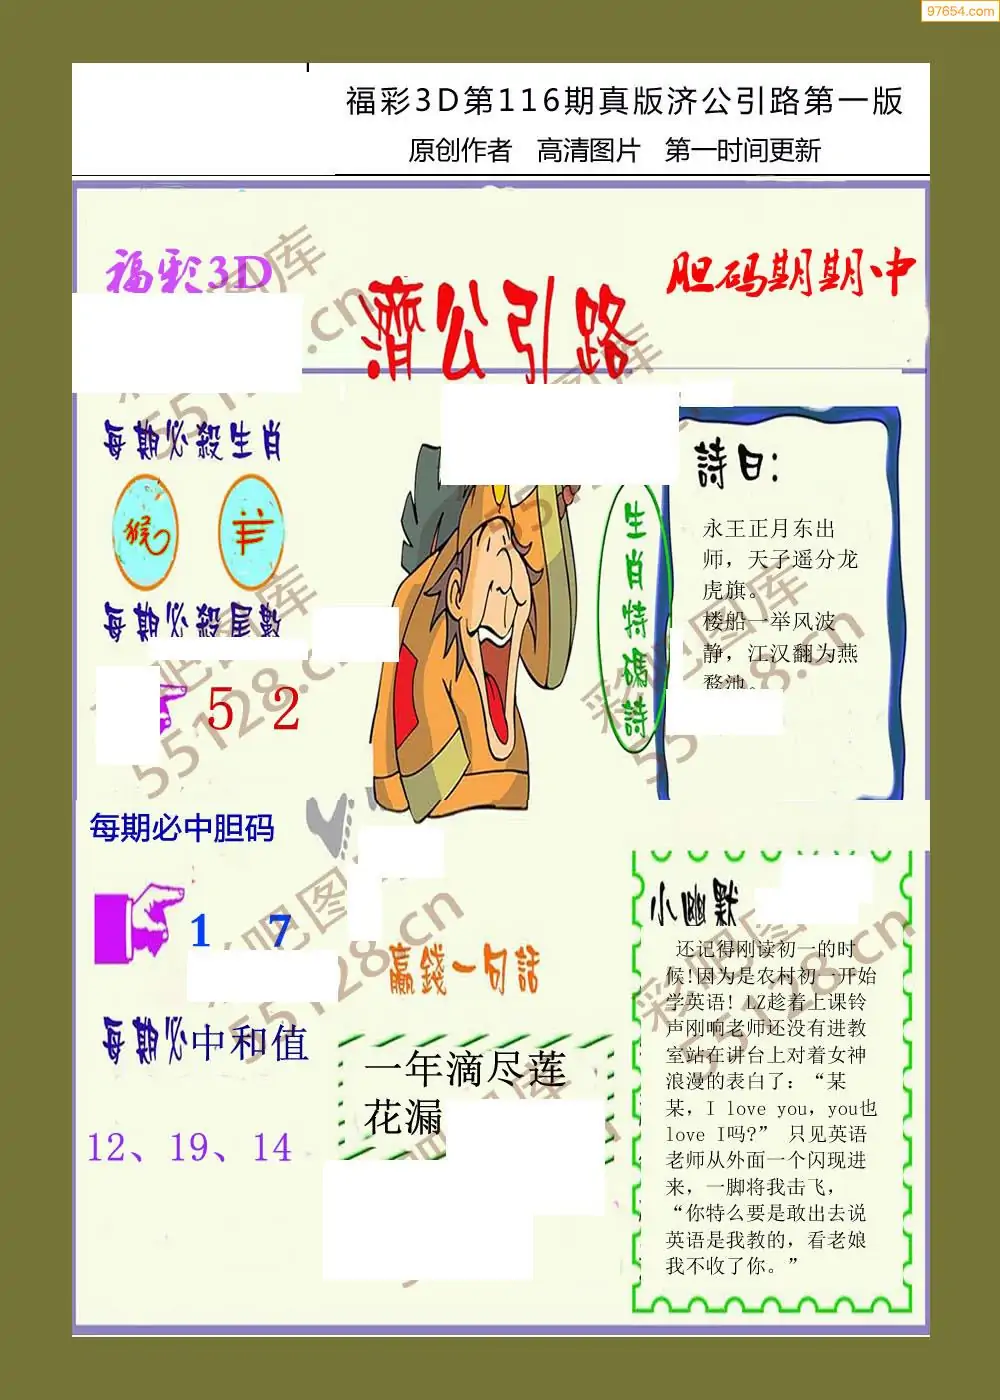 97654.com
福彩3D第116期真版济公引路第一版
原创作者 高清图片 第一时间更新
福彩3D
濟公引路
胆码期期中
每期必殺生肖
猴 羊
每期必殺尾數
5 2
每期必中胆码
1 7
每期必中和值
12、19、14
生肖特碼詩
詩曰：
永王正月东出
师，天子遥分龙
虎旗。
楼船一举风波
静，江汉翻为燕
鹜池。
贏錢一句話
一年滴尽莲
花漏
小幽默
还记得刚读初一的时
候!因为是农村初一开始
学英语! LZ趁着上课铃
声刚响老师还没有进教
室站在讲台上对着女神
浪漫的表白了：“某
某，I love you，you也
love I吗?” 只见英语
老师从外面一个闪现进
来，一脚将我击飞，
“你特么要是敢出去说
英语是我教的，看老娘
我不收了你。”
彩吧图库
55128.cn